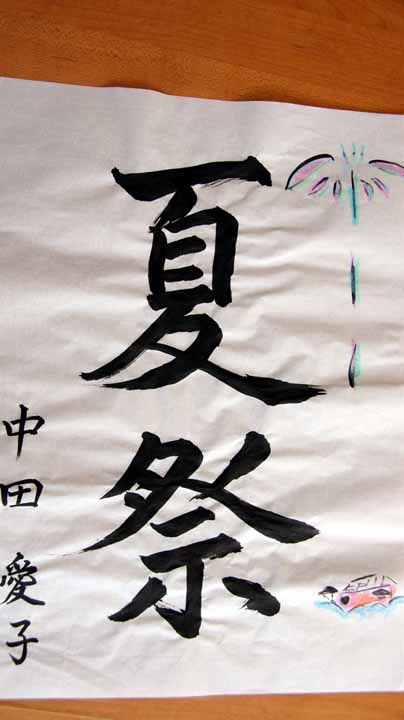 夏祭
中田愛子